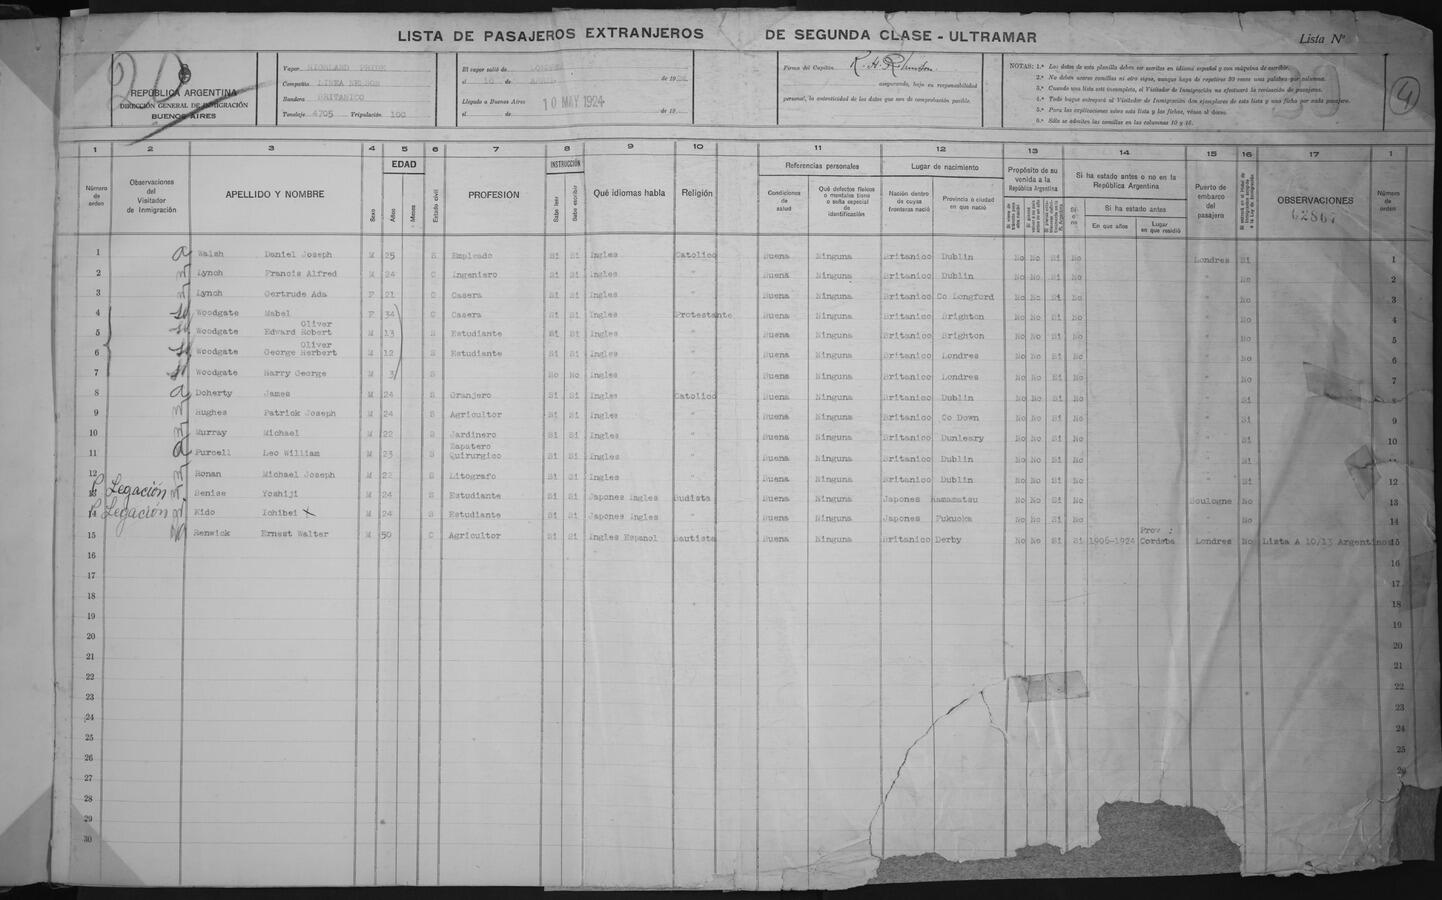 LISTA DE PASAJEROS EXTRANJEROS DE SEGUNDA CLASE - ULTRAMAR
Lista Nº
REPÚBLICA ARGENTINA
DIRECCIÓN GENERAL DE INMIGRACIÓN
BUENOS AIRES
Vapor HIGHLAND PRIDE
Compañía LINEA NELSON
Bandera BRITANICO
Tonelaje 4705 Tripulación 100
El vapor salió de LONDRES
el 16 de ABRIL de 19
Llegado a Buenos Aires 10 MAY 1924
el de de 19
Firma del Capitán
asegurando, bajo su responsabilidad
personal, la autenticidad de los datos que son de comprobación posible.
NOTAS: 1.ª Los datos de esta planilla deben ser escritos en idioma español y con máquina de escribir.
2.ª No deben usarse comillas ni otro signo, aunque haya de repetirse 30 veces una palabra por columna.
3.ª Cuando una lista esté incompleta, el Visitador de Inmigración no efectuará la revisación de pasajeros.
4.ª Todo buque entregará al Visitador de Inmigración dos ejemplares de esta lista y una ficha por cada pasajero.
5.ª Para las explicaciones sobre esta lista y las fichas, véase al dorso.
6.ª Sólo se admiten las comillas en las columnas 10 y 15.
4
1 2 3 4 5 6 7 8 9 10 11 12 13 14 15 16 17 1
Número de orden
Observaciones del Visitador de Inmigración
APELLIDO Y NOMBRE
Sexo
EDAD
Años
Meses
Estado civil
PROFESIÓN
INSTRUCCIÓN
Sabe leer
Sabe escribir
Qué idiomas habla
Religión
Referencias personales
Condiciones de salud
Qué defectos físicos o mentales tiene o seña especial de identificación
Lugar de nacimiento
Nación dentro de cuyas fronteras nació
Provincia o ciudad en que nació
Propósito de su venida a la República Argentina
Si ha estado antes o no en la República Argentina
Si o no
Si ha estado antes
En que años
Lugar en que residió
Puerto de embarco del pasajero
OBSERVACIONES
62867
Número de orden
1 a Walsh Daniel Joseph M 25 S Empleado Si Si Ingles Catolico Buena Ninguna Britanico Dublin No No Si No Londres Si 1
2 Lynch Francis Alfred M 24 C Ingeniero Si Si Ingles " Buena Ninguna Britanico Dublin No No Si No " No 2
3 Lynch Gertrude Ada F 21 C Casera Si Si Ingles " Buena Ninguna Britanico Co Longford No No Si No " No 3
4 Woodgate Mabel F 34 C Casera Si Si Ingles Protestante Buena Ninguna Britanico Brighton No No Si No " No 4
5 Woodgate Edward Robert Oliver M 13 S Estudiante Si Si Ingles " Buena Ninguna Britanico Brighton No No Si No " No 5
6 Woodgate George Herbert Oliver M 12 S Estudiante Si Si Ingles " Buena Ninguna Britanico Londres No No Si No " No 6
7 Woodgate Harry George M 3 S No No Ingles " Buena Ninguna Britanico Londres No No Si No " No 7
8 a Doherty James M 24 S Granjero Si Si Ingles Catolico Buena Ninguna Britanico Dublin No No Si No " Si 8
9 Hughes Patrick Joseph M 24 S Agricultor Si Si Ingles " Buena Ninguna Britanico Co Down No No Si No " 9
10 Murray Michael M 22 S Jardinero Si Si Ingles " Buena Ninguna Britanico Dunleary No No Si No " Si 10
11 a Purcell Leo William M 23 S Zapatero Quirurgico Si Si Ingles " Buena Ninguna Britanico Dublin No No Si No " Si 11
12 Ronan Michael Joseph M 22 S Litografo Si Si Ingles " Buena Ninguna Britanico Dublin No No Si No " Si 12
13 Legación Benise Yoshiji M 24 S Estudiante Si Si Japones Ingles Budista Buena Ninguna Japones Hamamatsu No No Si No Boulogne No 13
14 Legación Kido Ichibei X M 24 S Estudiante Si Si Japones Ingles " Buena Ninguna Japones Fukuoka No No Si No " No 14
15 Renwick Ernest Walter M 50 C Agricultor Si Si Ingles Espanol Bautista Buena Ninguna Britanico Derby No No Si Si 1906-1924 Prov: Cordoba Londres No Lista A 10/13 Argentinos 15
16 16
17 17
18 18
19 19
20 20
21 21
22 22
23 23
24 24
25 25
26 26
27
28
29
30